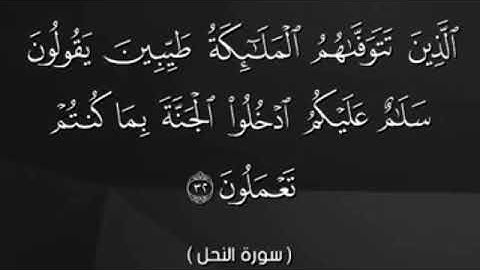 ٱلَّذِينَ تَتَوَفَّىٰهُمُ ٱلْمَلَـٰٓئِكَةُ طَيِّبِينَ يَقُولُونَ
سَلَـٰمٌ عَلَيْكُمُ ٱدْخُلُوا۟ ٱلْجَنَّةَ بِمَا كُنتُمْ
تَعْمَلُونَ ٣٢
( سورة النحل )